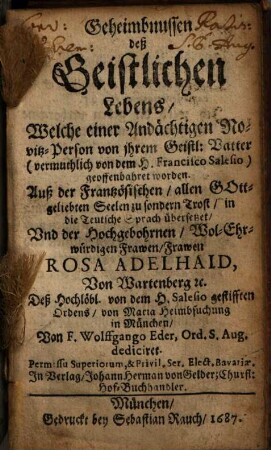 Geheimbnussen
deß
Geistlichen
Lebens/
Welche einer Andächtigen No-
vitz-Person von jhrem Geistl: Vatter
(vermuthlich von dem H. Francisco Salesio)
geoffenbahret worden.
Auß der Frantzösischen / allen GOtt-
geliebten Seelen zu sondern Trost / in
die Teutsche Sprach übersetzet /
Vnd der Hochgebohrnen / Wol-Ehr-
würdigen Frawen / Frawen
ROSA ADELHAID,
Von Wartenberg ꝛc.
Deß Hochlöbl. von dem H. Salesio gestifften
Ordens / von Maria Heimbsuchung
in München /
Von F. Wolffgango Eder, Ord. S. Aug.
dediciret.
Permissu Superiorum, & Privil. Ser. Elect. Bavariæ.
In Verlag / Johann Herman von Gelder; Churfl:
Hof-Buchhandler.
München /
Gedruckt bey Sebastian Rauch / 1687.